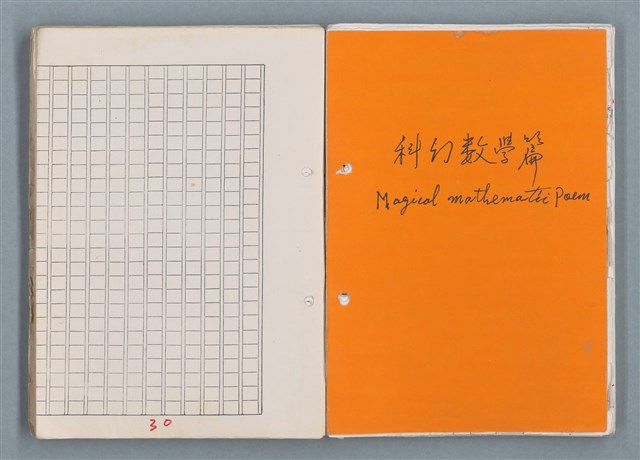 30
科幻数學篇
Magical mathematic Poem